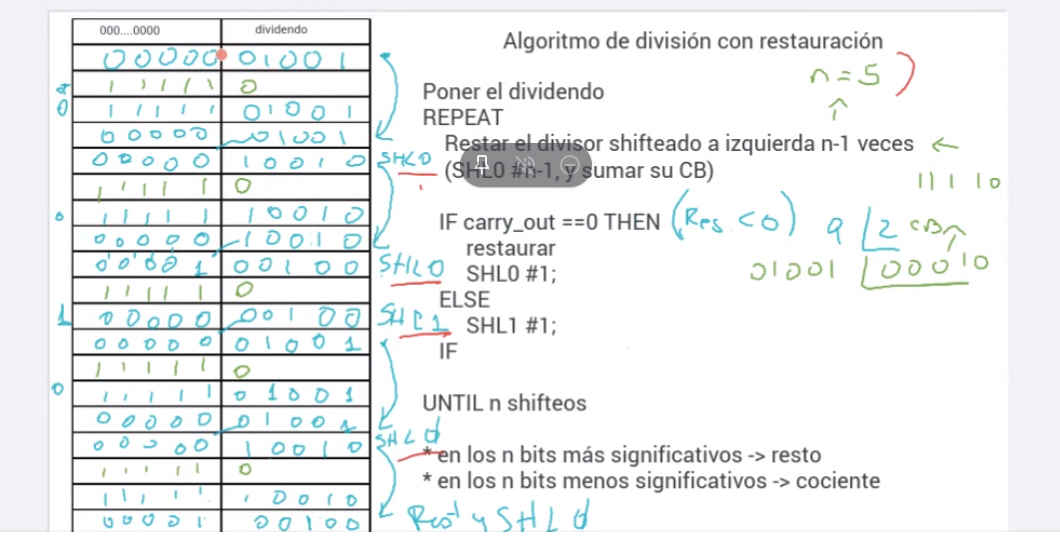 000....0000 dividendo
00000 01001
11111 0
0 11111 01001
00000 01001
00000 10010 SHL0
11111 0
0 11111 10010
00000 10010
00001 00100 SHL0
11111 0
1 00000 00100 SHL1
00000 01001
11111 0
0 11111 01001
00000 01001
00000 10010 SHL0
11111 0
11111 10010
00001 00100 Rest y SHL0
Algoritmo de división con restauración
n=5
Poner el dividendo
REPEAT
Restar el divisor shifteado a izquierda n-1 veces
(SHL0 #n-1, y sumar su CB)
11110
IF carry_out ==0 THEN (Res. <0) 9 2 CB
restaurar 01001 00010
SHL0 #1;
ELSE
SHL1 #1;
IF
UNTIL n shifteos
* en los n bits más significativos -> resto
* en los n bits menos significativos -> cociente